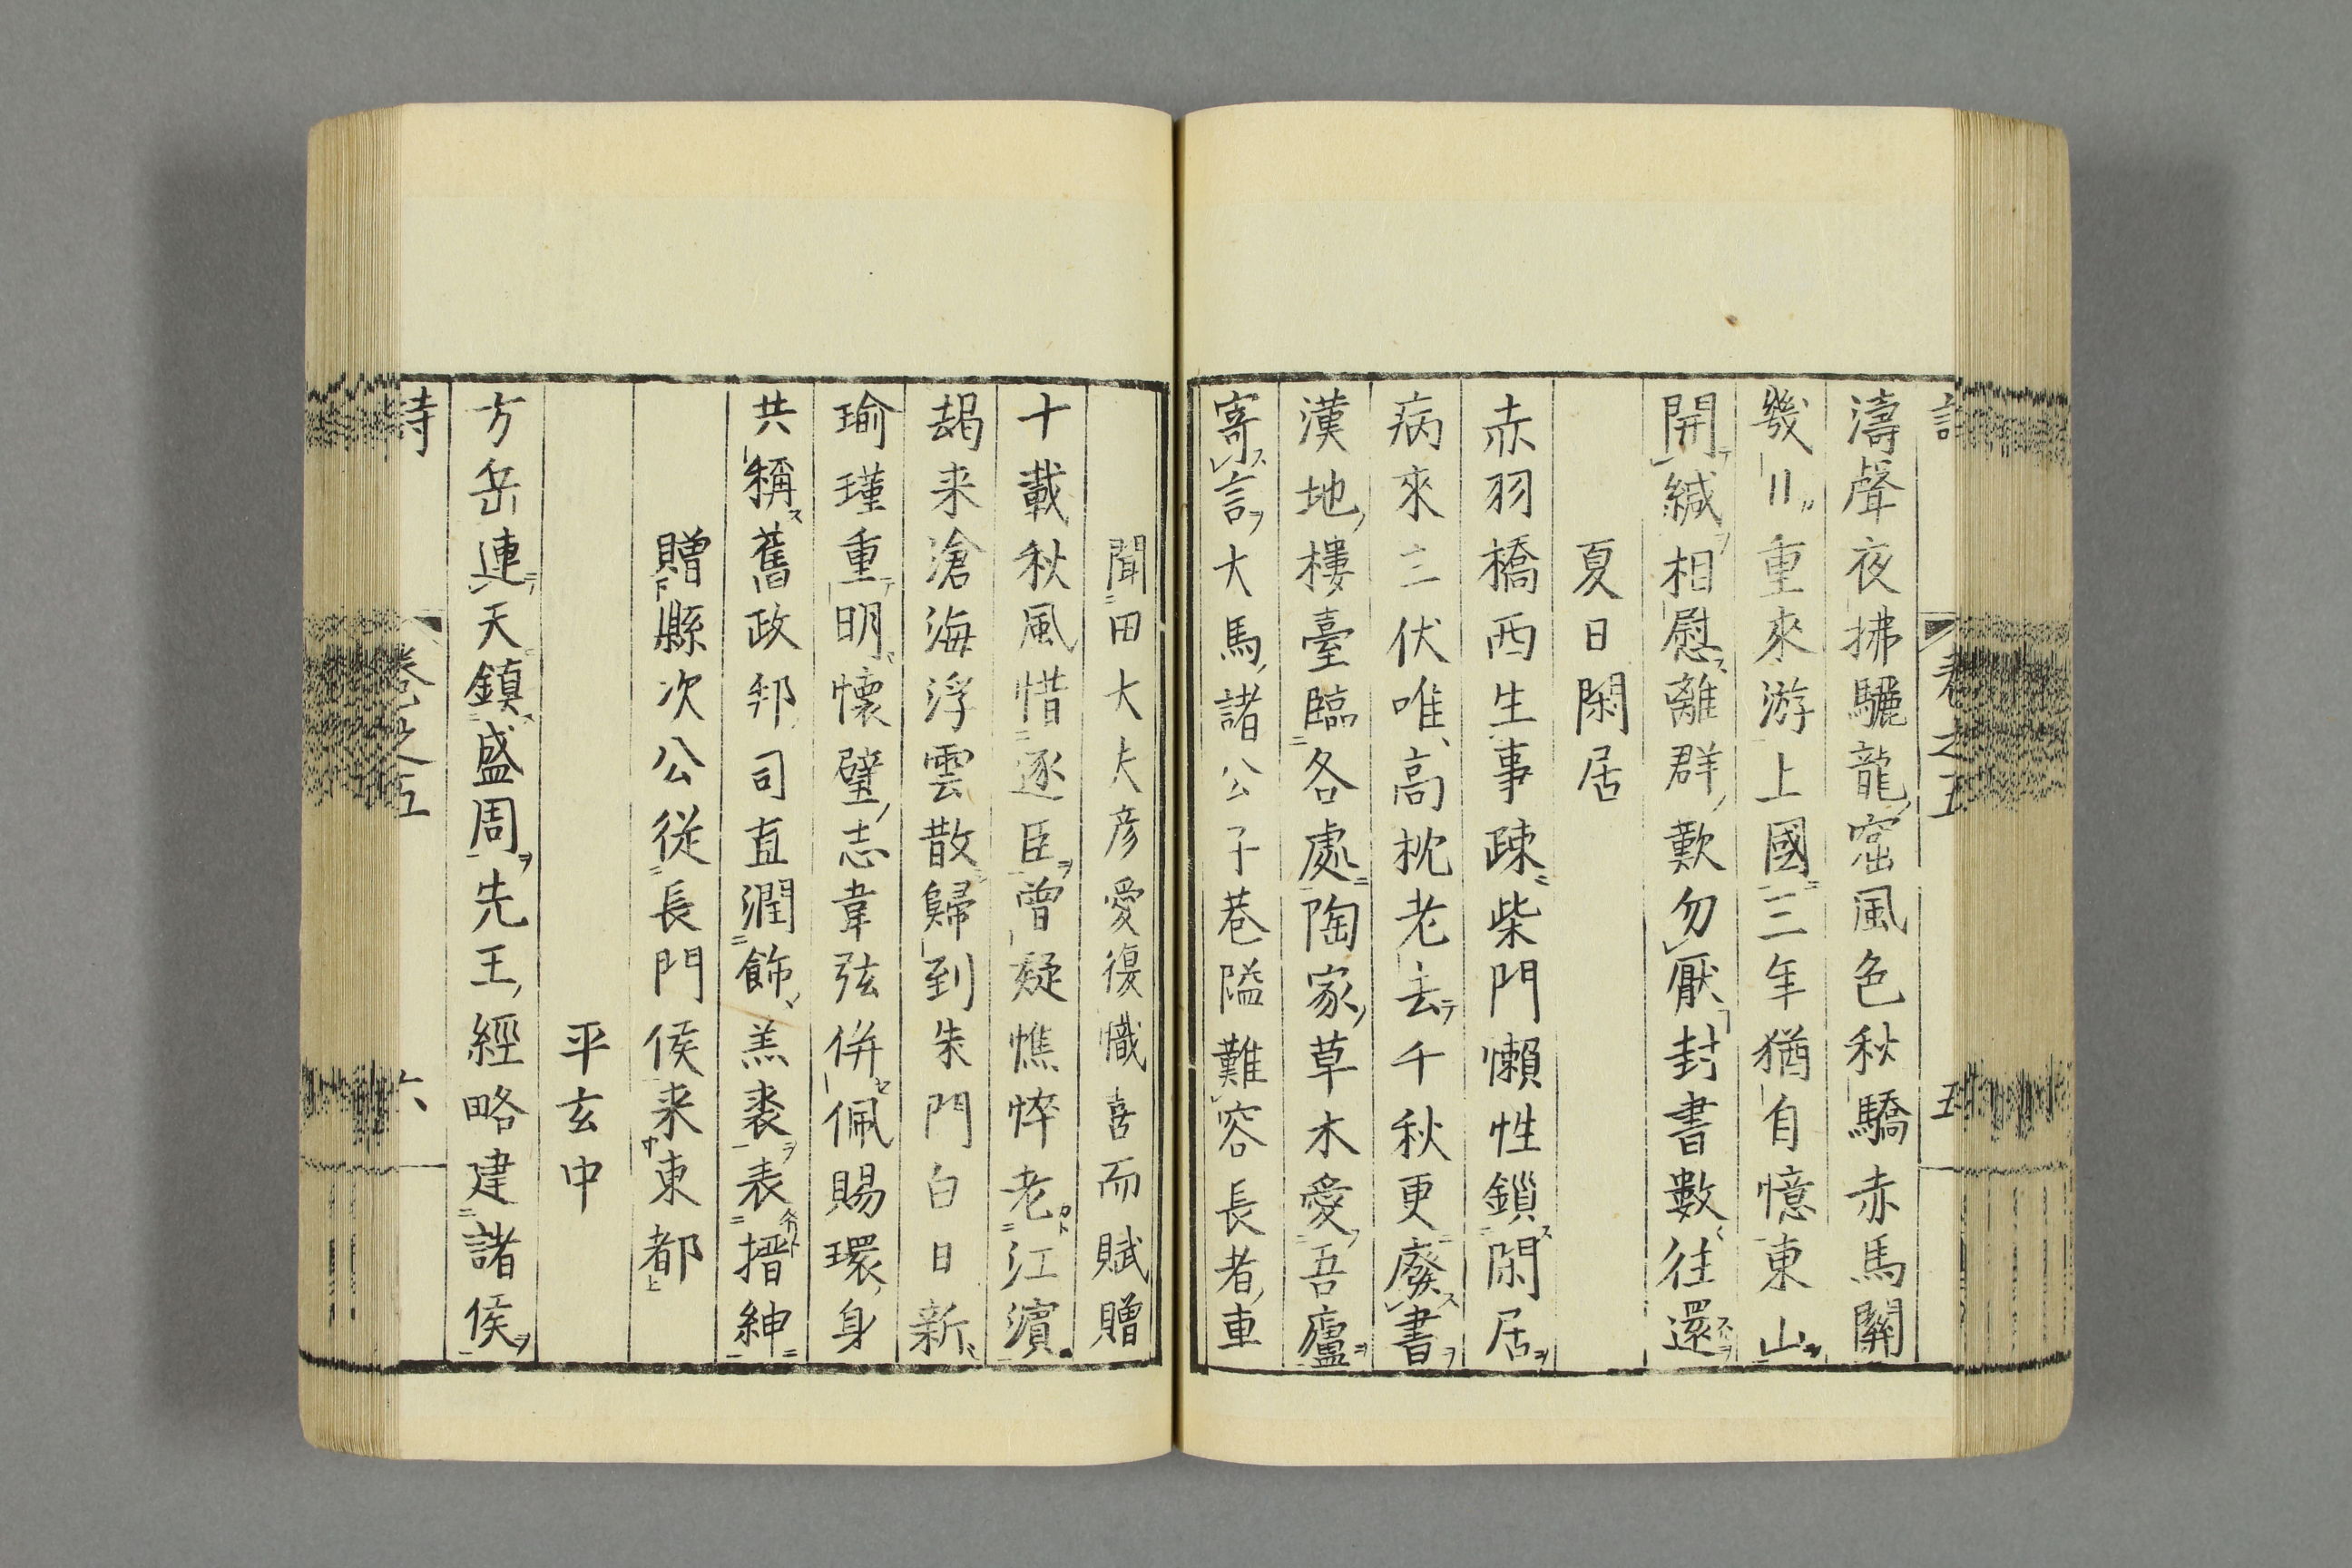 濤聲夜拂驪龍窟風色秋驕赤馬關
幾〃重來游上國三年猶自憶東山
開緘相慰離群歎勿厭封書數往還
夏日閑居
赤羽橋西生事疎柴門懶性鎖閑居
病來三伏唯高枕老去千秋更廢書
漢地樓臺臨各處陶家草木愛吾廬
寄言大馬諸公子巷隘難容長者車
聞田大夫彦愛復幟喜而賦贈
十載秋風惜逐臣曾疑憔悴老江濱
朅来滄海浮雲散歸到朱門白日新
瑜瑾重明懷璧志韋弦併佩賜環身
共稱舊政邦司直潤飾羔裘表搢紳
贈縣次公従長門侯来東都
平玄中
方岳連天鎮盛周先王經略建諸侯
詩 卷之五 六